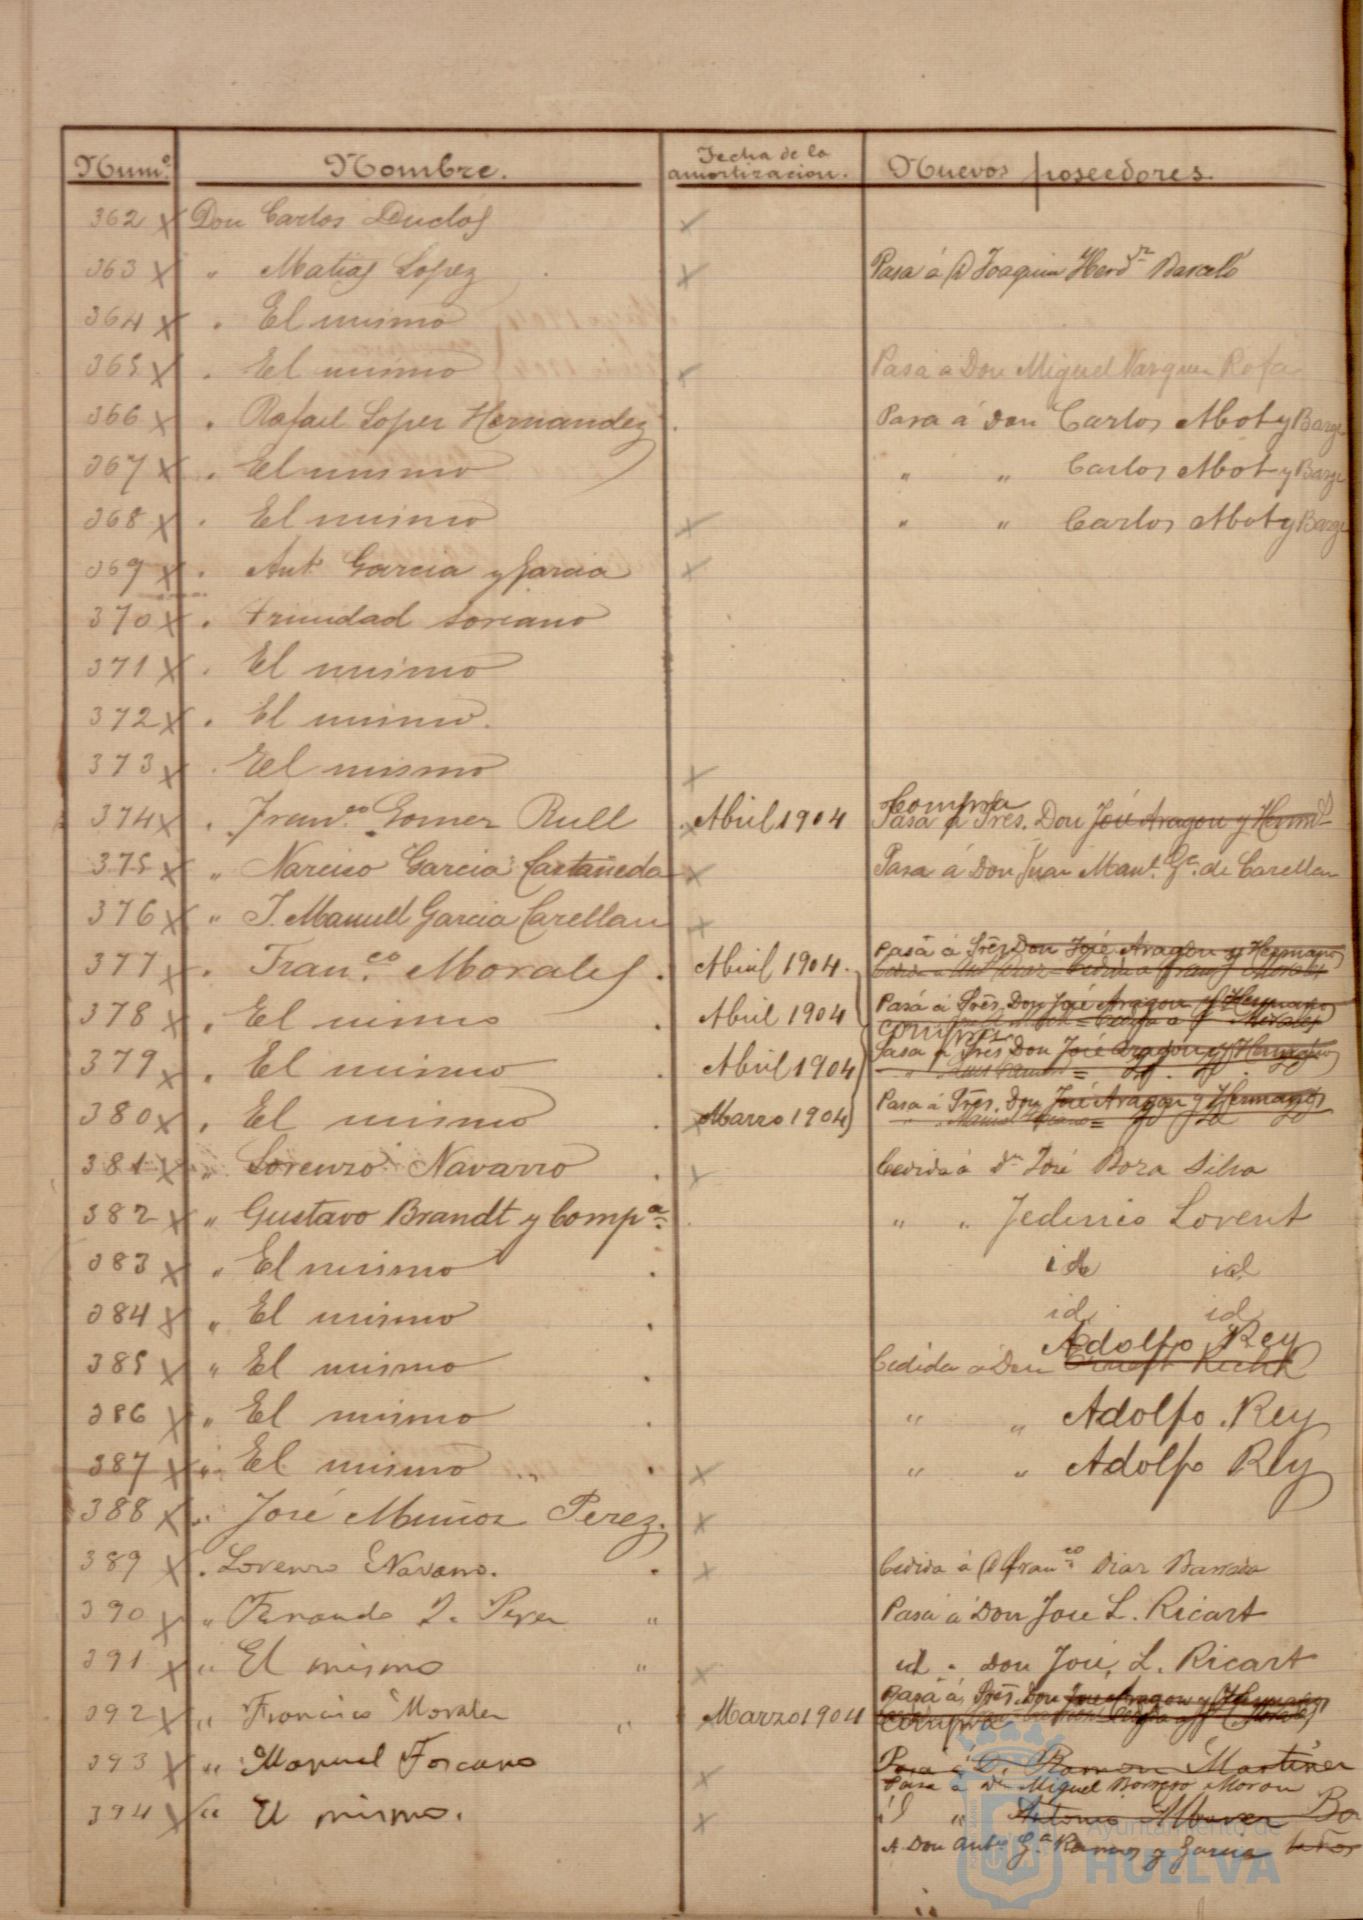 Numº. Nombre. Fecha de la amortizacion. Nuevos poseedores.
362 x Don Carlos Duclós x
363 x " Matias Lopez x Pasa á D Joaquin Herdrn Barceló
364 x " El mismo
365 x " El mismo x Pasa á Don Miguel Vazquez Rofa
366 x " Rafael Lopez Hernandez Pasa á Don Carlos Abot y Barge
367 x " El mismo " " Carlos Abot y Barge
368 x " El mismo x " " Carlos Abot y Barge
369 x " Antº Garcia y Garcia x
370 x " trinidad Soriano
371 x " El mismo
372 x " El mismo.
373 x " El mismo x
Compra
374 x " Franco. Gomez Rull x Abril 1904 Pasa á Sres. Don José Aragon y Hermos
375 x " Narciso Garcia Castañeda x Pasa á Don Juan Manl. Ga. de Carellan
376 x " J. Manuel Garcia Carellan x
377 x " Franco. Morales Abril 1904. Pasa á Sres Don José Aragon y Hermano
378 x " El mismo Abril 1904 Pasa á Sres. Don José Aragon y Hermano
Compra
379 x " El mismo Abril 1904 Pasa á Sres Don José Aragon y Hermano
380 x " El mismo x Marzo 1904 Pasa á Sres. Don José Aragon y Hermano
381 x " Lorenzo Navarro x Cedida á Dn José Bora Silva
382 x " Gustavo Brandt y Compa. " " Federico Lorent
383 x " El mismo id id
384 x " El mismo id id
Adolfo Rey
385 x " El mismo Cedida á Don
386 x " El mismo " " Adolfo Rey
387 x " El mismo x " " Adolfo Rey
388 x " José Muñoz Perez. x
389 x " Lorenzo Navarro. x Cedida á D Franco Diaz Barrada
390 x " Fernando I. Perez " Pasa á Don José L. Ricart
391 x " El mismo " x id " Don José L. Ricart
Pasa á Sres. Don José Aragon y Hermano
392 x " Francisco Morales " x Marzo 1904
Compra
393 x " Manuel Toscano x Pasa á D. Ramon Martinez
Pasa á Dn Miguel Borrero Moron
394 x " El mismo. x id " Antonio
A Don Anto Ga Ramos y Garcia
Ayuntamiento de
HUELVA